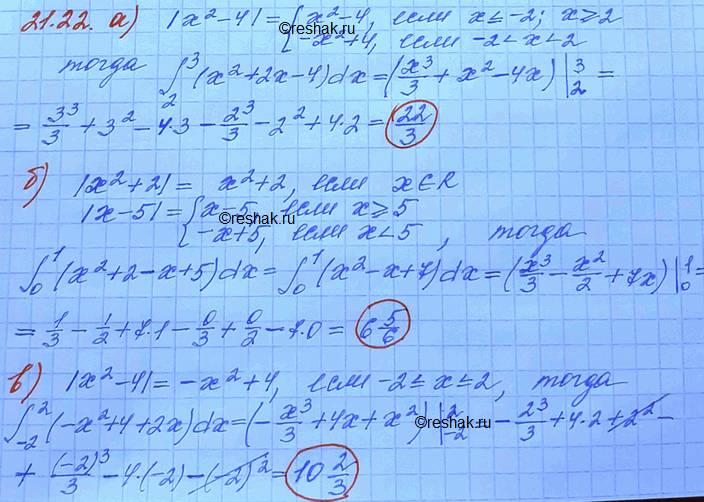 21.22. а) |x²-4| = { x²-4, если x ≤ -2; x ≥ 2
-x²+4, если -2 < x < 2
тогда ∫₂³ (x²+2x-4)dx = (x³/3 + x² - 4x) |₂³ =
= 3³/3 + 3² - 4·3 - 2³/3 - 2² + 4·2 = 22/3
©reshak.ru
б) |x²+2| = x²+2, если x ∈ R
|x-5| = { x-5, если x ≥ 5
©reshak.ru
-x+5, если x < 5, тогда
∫₀¹ (x²+2-x+5)dx = ∫₀¹ (x²-x+7)dx = (x³/3 - x²/2 + 7x) |₀¹ =
= 1/3 - 1/2 + 7·1 - 0/3 + 0/2 - 7·0 = 6 5/6
в) |x²-4| = -x²+4, если -2 ≤ x ≤ 2, тогда
©reshak.ru
∫₋₂² (-x²+4+2x)dx = (-x³/3 + 4x + x²) |₋₂² - 2³/3 + 4·2 + 2² -
+ (-2)³/3 - 4·(-2) - (-2)² = 10 2/3